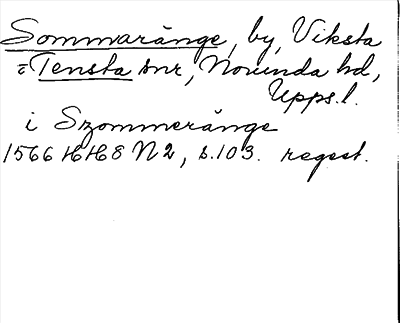 Sommaränge, by, Viksta
= Tensta snr, Norunda hd,
Upps. l.
i Szommeränge
1566 HH8 N2, s. 103. regest.